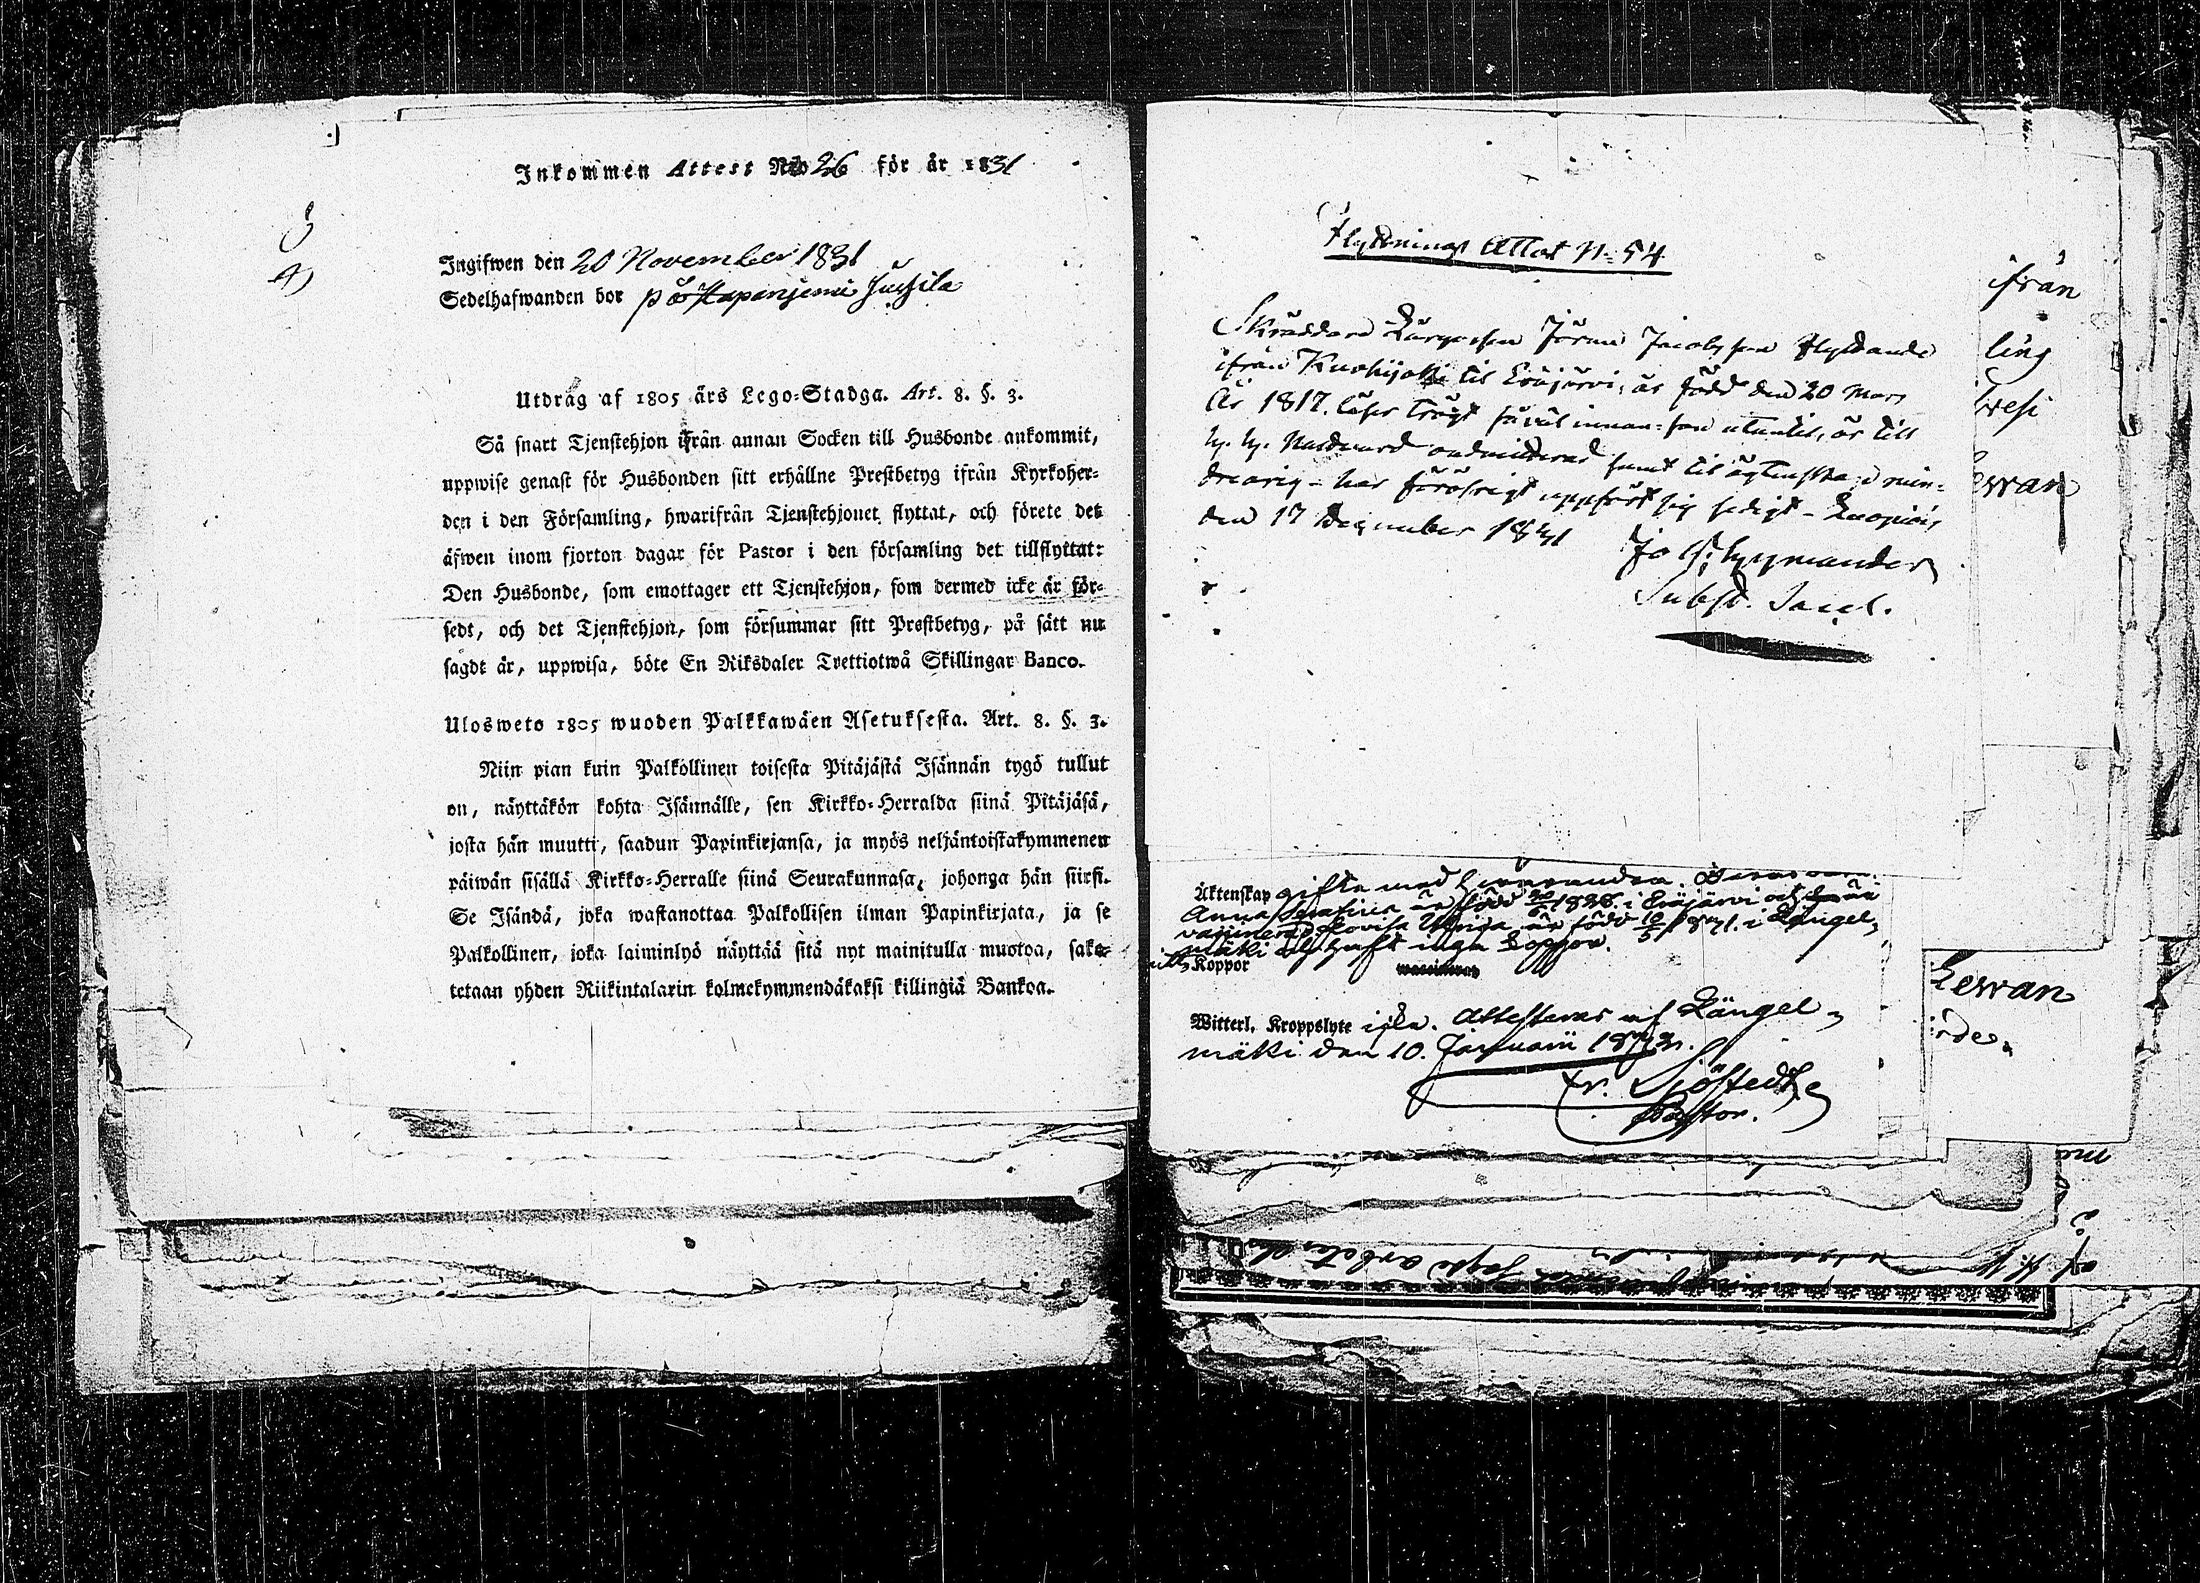 Inkommen Attest N:o 26 för år 1831
Ingifwen den 20 November 1831
Sedelhafwanden bor på Jussila
Utdrag af 1805 års Lego-Stadga. Art. 8. §. 3.
Så snart Tjenstehjon ifrån annan Socken till Husbonde ankommit,
uppwise genast för Husbonden sitt erhållne Prestbetyg ifrån Kyrkoher-
den i den Församling, hwarifrån Tjenstehjonet flyttat, och förete det
äfwen inom fjorton dagar för Pastor i den församling det tillflyttat:
Den Husbonde, som emottager ett Tjenstehjon, som dermed icke är för-
sedt, och det Tjenstehjon, som försummar sitt Prestbetyg, på sätt nu
sagdt är, uppwisa, böte En Riksdaler Trettiotwå Skillingar Banco.
Ulosweto 1805 wuoden Palkkawäen Asetuksesta. Art. 8. §. 3.
Niin pian kuin Palkollinen toisesta Pitäjästä Isännän tygö tullut
on, näyttäkön kohta Isännälle, sen Kirkko-Herralda siinä Pitäjäsä,
josta hän muutti, saadun Papinkirjansa, ja myös neljäntoistakymmenen
päiwän sisällä Kirkko-Herralle siinä Seurakunnasa, johonga hän siirsi.
Se Isändä, joka wastanottaa Palkollisen ilman Papinkirjata, ja se
Palkollinen, joka laiminlyö näyttää sitä nyt mainitulla muotoa, sako-
tetaan yhden Riikintalarin kolmekymmendäkaksi killingiä Bankoa.
Flyttnings Attest N:o 54
Skräddare Jöran Jacobsson flyttande
ifrån Kuohijoki til Eräjärvi, är född den 20 Mars
År 1817. läser trögt såväl innan- som utantil, är till
h. h. Nattvard admitterad samt til ägtenskap min-
dreårig - har föröfrigt uppfört sig sedigt -
den 17 December 1831
Jo
Subst. Sacel.
ifrån
ling
wesi
ewan
Äktenskap gifte med hvarandra. Deras
Anna Serafina är född 1838 i Eräjärvi och
Lovisa Ulrika är född 10/5 1871. i Längel-
mäki och haft inga koppor.
Koppor
Witterl. Kroppslyte icke. Attesteras af Längel-
mäki den 10. Januarii 187
Fr. Sjöstedt
Pastor.
ewan
rde.